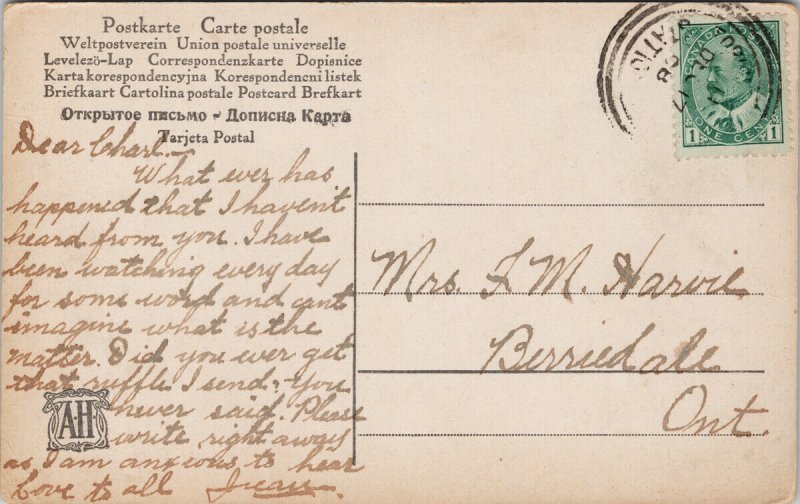 Postkarte Carte postale
Weltpostverein Union postale universelle
Levelező-Lap Correspondenzkarte Dopisnice
Karta korespondencyjna Korespondencni listek
Briefkaart Cartolina postale Postcard Brefkart
Открытое письмо - Дописна Карта
Tarjeta Postal
CANADA POSTAGE
ONE CENT
1 1
Dear Charl.—
What ever has
happened that I haven't
heard from you. I have
been watching every day
for some word and can't
imagine what is the
matter. Did you ever get
that ruffle I send? You
never said. Please
write right away
as I am anxious to hear
Love to all
AH
Mrs. F. M. Harvie
Berriedale
Ont.